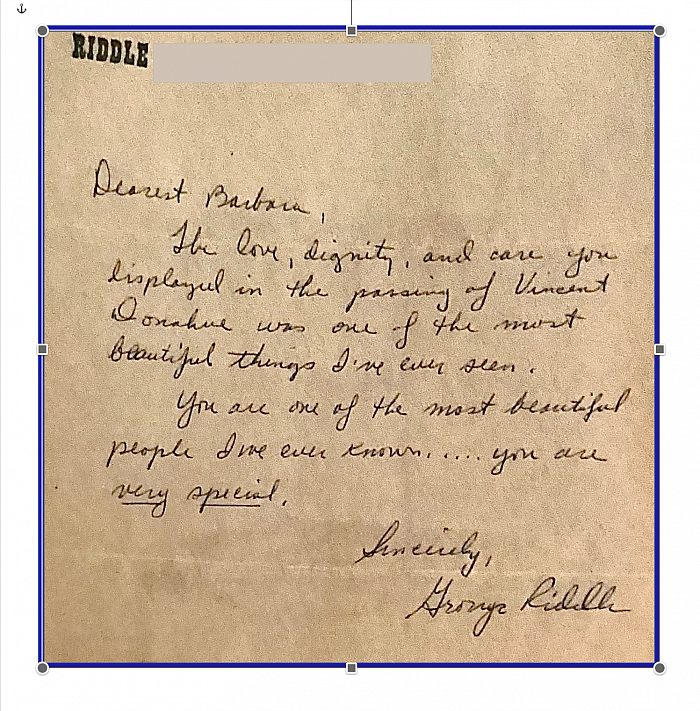 RIDDLE
Dearest Barbara,
The love, dignity, and care you
displayed in the passing of Vincent
Donahue was one of the most
beautiful things I've ever seen.
You are one of the most beautiful
people I've ever known..... you are
very special.
Sincerely,
George Riddle